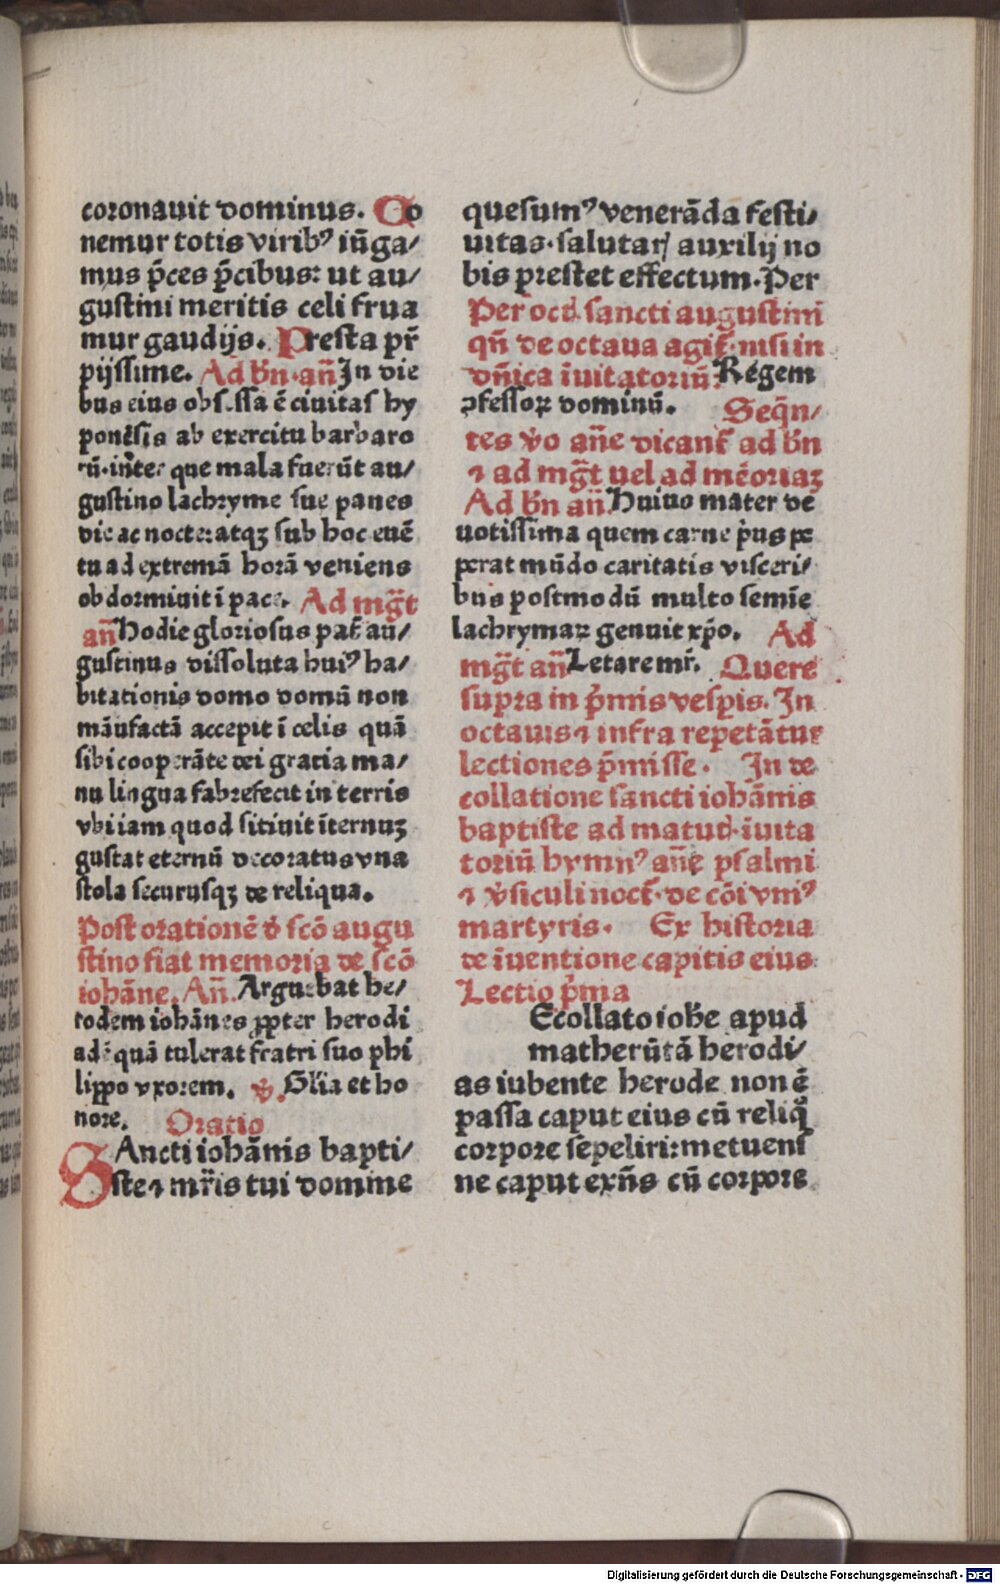 coronauit dominus. Co
nemur totis viribꝰ iūga/
mus p̄ces p̄cibus: ut au/
gustini meritis celi frua
mur gaudijs. Presta pr̄
pijssime. Ad bn̄ · an̄ In die
bus eius obsessa ē ciuitas hy
ponēsis ab exercitu barbaro
rū · inter que mala fuerūt au/
gustino lachryme sue panes
die ac nocte: atqꝫ sub hoc euē
tu ad extremā horā veniens
obdormiuit ī pace. Ad mḡt
an̄ Hodie gloriosus pat̄ au/
gustinus dissoluta huiꝰ ha/
bitationis domo domū non
māufactā accepit ī celis quā
sibi cooperāte dei gratia ma/
nu lingua fabrefecit in terris
vbi iam quod sitiuit īternuꝫ
gustat eternū decoratus vna
stola securusqꝫ de reliqua.
Post orationē d̄ scō augu
stino fiat memoria de scō
iohāne. An̄. Arguebat he/
rodem iohānes ꝓpter herodi
adē quā tulerat fratri suo phi
lippo vxorem. ꝟ. Gl̄ia et ho
nore. Oratio
SAncti iohānis bapti/
ste ⁊ mr̄is tui domine
quesumꝰ venerāda festi/
uitas · salutarꝭ auxilij no
bis prestet effectum. Per
Per oct̄ sancti augustini
qn̄ de octaua agit̄ · nisi in
dn̄ica īuitatoriū: Regem
ꝯfessoꝝ dominū. Seq̄n/
tes v̄o an̄e dicant̄ ad bn̄
⁊ ad mḡt uel ad mēoriaꝫ
Ad bn̄ an̄ Huius mater de
uotissima quem carne p̄us pe
perat mūdo caritatis visceri/
bus postmodū multo semīe
lachrymaꝝ genuit xp̄o. Ad
mḡt an̄ Letare mr̄. Quere
supra in p̄mis vesp̄is. In
octauis ⁊ infra repetātur
lectiones p̄misse. In de
collatione sancti iohānis
baptiste ad matut̄ · īuita
toriū hymnꝰ an̄e psalmi
⁊ ꝟsiculi noct̄ · de cōi vniꝰ
martyris. Ex historia
de īuentione capitis eius
Lectio p̄ma
Ecollato ioh̄e apud
matherūtā herodi/
as iubente herode non ē
passa caput eius cū reliq̄
corpore sepeliri: metuens
ne caput exn̄s cū corpore
Digitalisierung gefördert durch die Deutsche Forschungsgemeinschaft - DFG